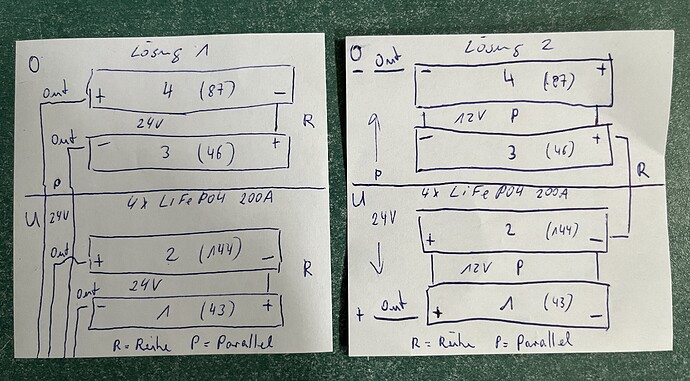 Lösung 1
O
Out
+ 4 (87) -
24V
R
Out
- 3 (46) +
P
U 24V
4x LiFePO4 200A
Out
+ 2 (144) -
24V
R
Out
- 1 (43) +
R = Reihe P = Parallel
Lösung 2
O
- Out
- 4 (87) +
12V P
- 3 (46) +
P
R
U
4x LiFePO4 200A
24V
+ 2 (144) -
12V P
+ Out
+ 1 (43) -
R = Reihe P = Parallel